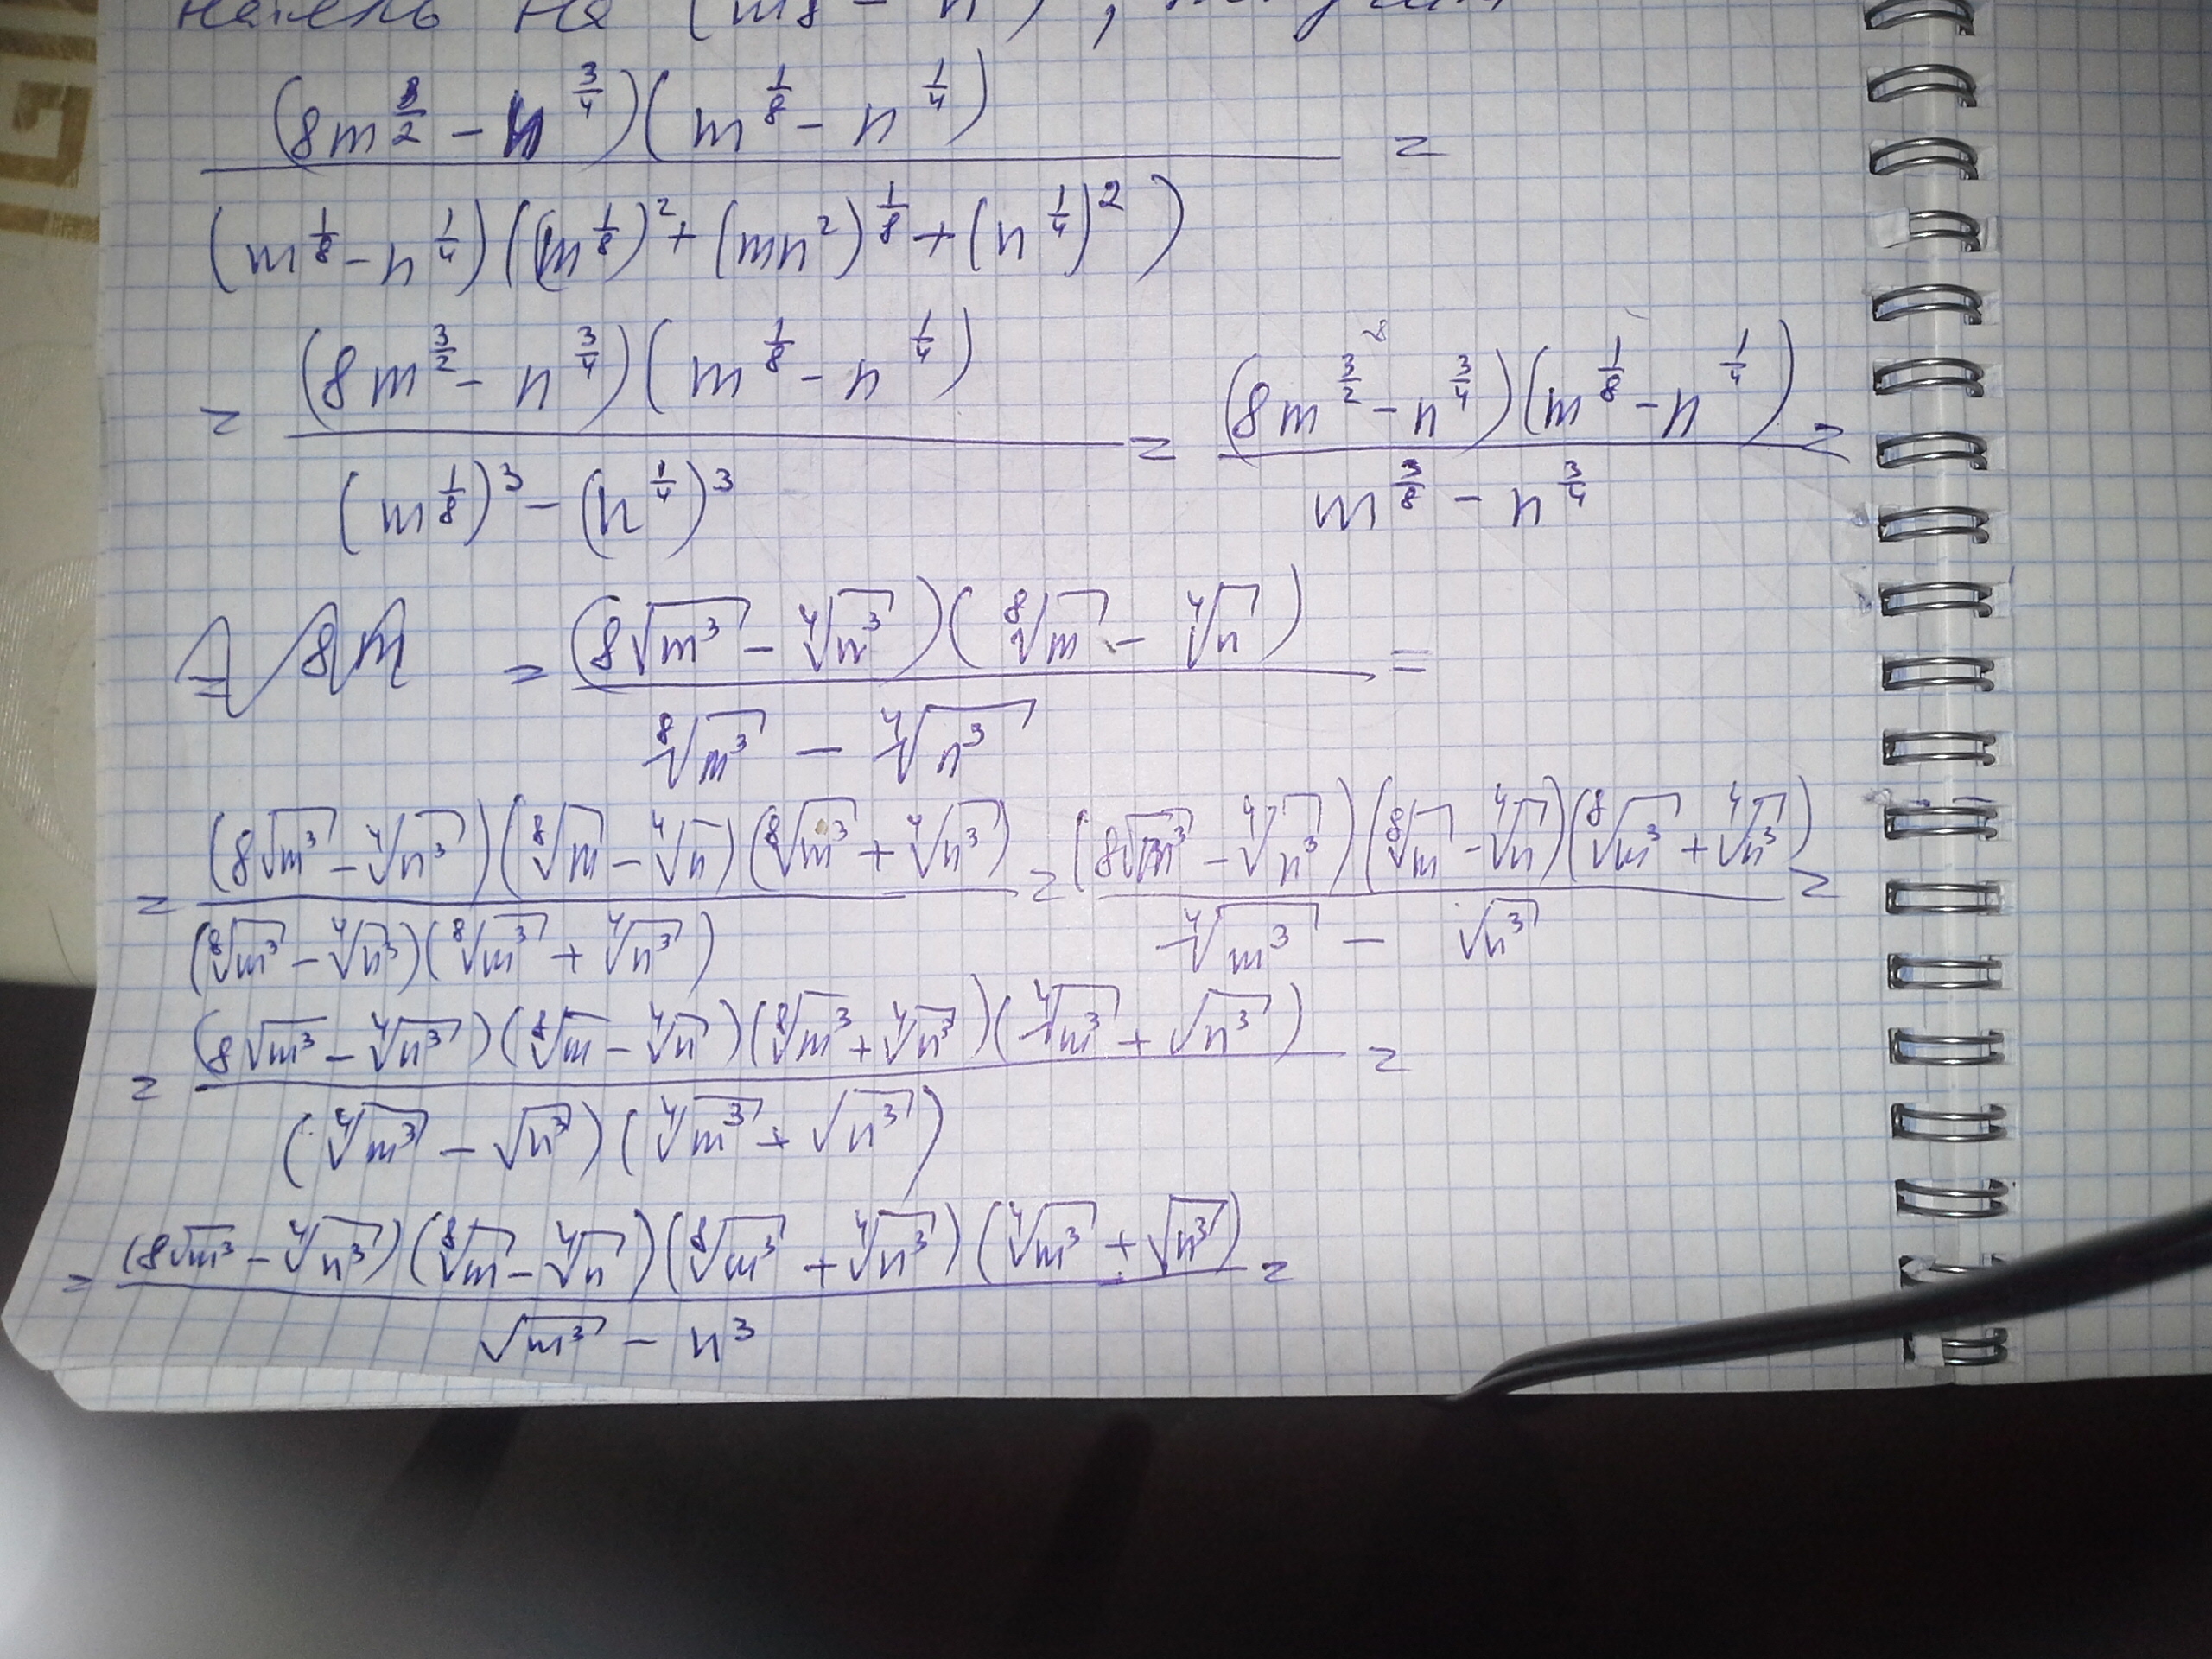 на (m⅛ - n),
(8m^{3/2} - n^{3/4})(m^{1/8} - n^{1/4}) / (m^{1/8} - n^{1/4})((m^{1/8})^2 + (mn^2)^{1/8} + (n^{1/4})^2) =
= (8m^{3/2} - n^{3/4})(m^{1/8} - n^{1/4}) / (m^{1/8})^3 - (n^{1/4})^3 = (8m^{3/2} - n^{3/4})(m^{1/8} - n^{1/4}) / m^{3/8} - n^{3/4} =
= (8√m³ - ⁴√n³)(⁸√m - ⁴√n) / ⁸√m³ - ⁴√n³ =
= (8√m³ - ⁴√n³)(⁸√m - ⁴√n)(⁸√m³ + ⁴√n³) / (⁸√m³ - ⁴√n³)(⁸√m³ + ⁴√n³) = (8√m³ - ⁴√n³)(⁸√m - ⁴√n)(⁸√m³ + ⁴√n³) / ⁴√m³ - √n³ =
= (8√m³ - ⁴√n³)(⁸√m - ⁴√n)(⁸√m³ + ⁴√n³)(⁴√m³ + √n³) / (⁴√m³ - √n³)(⁴√m³ + √n³) =
= (8√m³ - ⁴√n³)(⁸√m - ⁴√n)(⁸√m³ + ⁴√n³)(⁴√m³ + √n³) / √m³ - n³ =